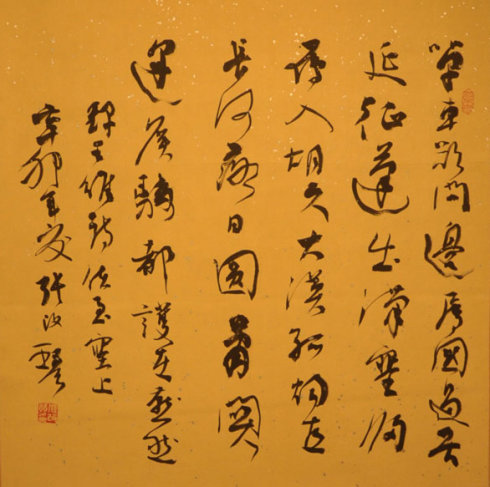 單車欲問邊屬國過居
延征蓬出漢塞歸
雁入胡天大漠孤烟直
長河落日圓蕭關
逢候騎都護在燕然
錄王維詩使至塞上
辛卯年夏張汝